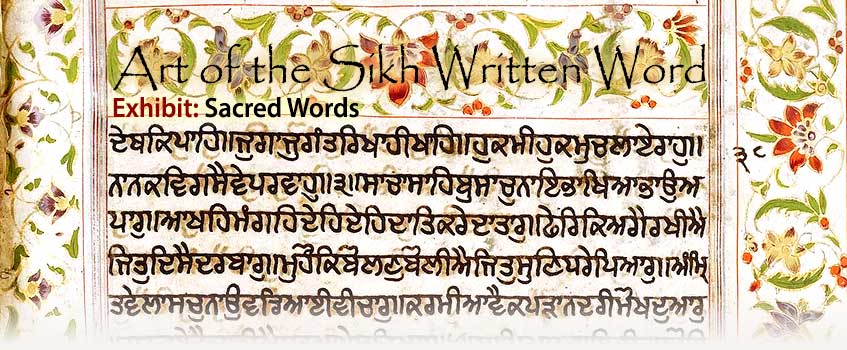 Art of the Sikh Written Word
Exhibit: Sacred Words
ਦੇਥਕਿਪਾਹਿ॥ਜੁਗਾਜੁਗੰਤਰਿਖਾਹੀਖਾਹਿ॥ਹੁਕਮੀਹੁਕਮੁਚਲਾਏਰਾਹੁ॥
ਨਾਨਕਵਿਗਸੈਵੇਪਰਵਾਹੁ॥੩॥ਸਾਚਾਸਾਹਿਬੁਸਾਚੁਨਾਇਭਾਖਿਆਭਾਉਅ
ਪਾਰੁ॥ਆਖਹਿਮੰਗਹਿਦੇਹਿਦੇਹਿਦਾਤਿਕਰੇਦਾਤਾਰੁ॥ਫੇਰਿਕਿਅਗੈਰਖੀਐ
ਜਿਤੁਦਿਸੈਦਰਬਾਰੁ॥ਮੁਹੌਕਿਬੋਲਣੁਬੋਲੀਐਜਿਤੁਸੁਣਿਧਰੇਪਿਆਰੁ॥ਅੰਮ੍ਰਿ
ਤਵੇਲਾਸਚੁਨਾਉਵਡਿਆਈਵੀਚਾਰੁ॥ਕਰਮੀਆਵੈਕਪੜਾਨਦਰੀਮੋਖੁਦੁਆਰੁ